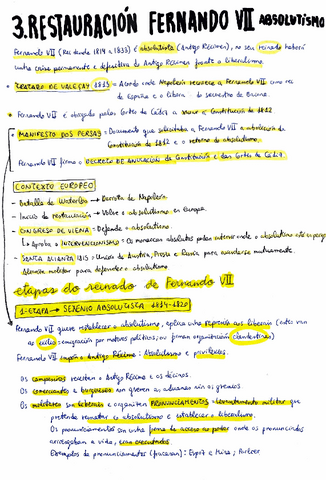 3. RESTAURACIÓN FERNANDO VII ABSOLUTISMO
Fernando VII (Rei dende 1814 a 1833) é absolutista (Antigo Réximen), no seu reinado haberá
unha crise permanente e definitiva do Antigo Réximen fronte o liberalismo.
TRATADO DE VALEÇAY 1813 = Acordo onde Napoleón recoñece a Fernando VII como rei
de España e o libera do secuestro de Bayona.
Fernando VII é obrigado polas Cortes de Cádiz a xurar a Constitución de 1812
MANIFESTO DOS PERSAS = Documento que solicitaba a Fernando VII a abolición da
Constitución de 1812 e o retorno do absolutismo.
Fernando VII firma o DECRETO DE ANULACIÓN da Constitución e das Cortes de Cádiz.
CONTEXTO EUROPEO
- Batalla de Waterloo → Derrota de Napoleón.
- Inicio da restauración → Volve o absolutismo en Europa.
- CONGRESO DE VIENA = Defende o absolutismo.
Se aproba o INTERVENCIONISMO: Os monarcas absolutos poden intervir onde o absolutismo
- SANTA ALIANZA 1815 = Unión de Austria, Prusia e Rusia para axudarse mutuamente.
Alianza militar para defender o absolutismo.
etapas do reinado de Fernando VII
1ª ETAPA → SEXENIO ABSOLUTISTA 1814-1820
Fernando VII quere restablecer o absolutismo, aplica unha represión aos liberais (estes van
ao exilio = emigración por motivos políticos, ou forman organización clandestina)
Fernando VII impón o Antigo Réxime: Absolutismo e privilexios.
Os campesiños rexeitan o Antigo Réximen e os décimos.
Os comerciantes e burgueses non queren as aduanas nin os gremios.
Os militares son liberais e organizan PRONUNCIAMENTOS = levantamento militar que
pretende rematar co absolutismo e establecer o liberalismo.
Os pronunciamentos son unha forma de acceso ao poder onde os pronunciados
arriscaban a vida, eran executados.
Exemplos de pronunciamentos (fracasan): Espoz e Mina, Porlier